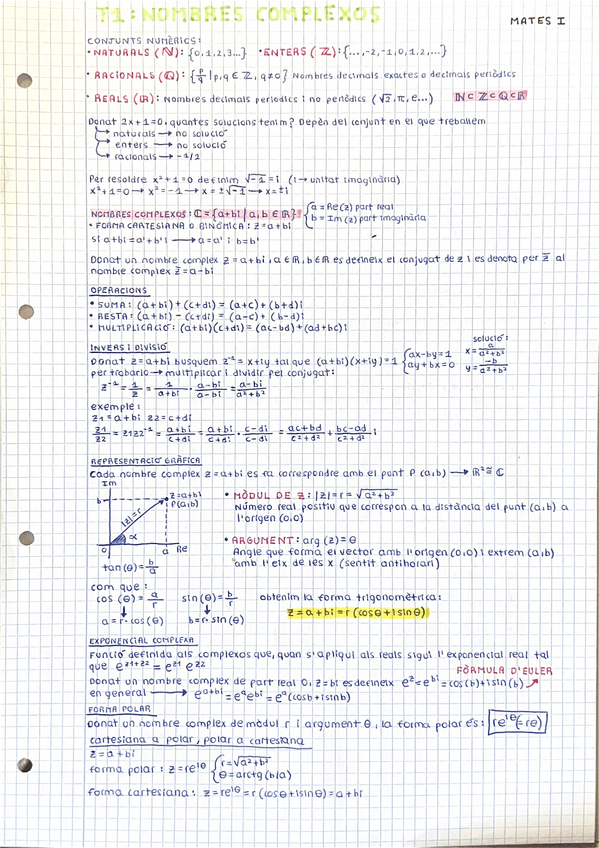 T1: NOMBRES COMPLEXOS
MATES I
CONJUNTS NUMÈRICS:
• NATURALS (ℕ): {0,1,2,3...} • ENTERS (ℤ): {...,-2,-1,0,1,2,...}
• RACIONALS (ℚ): {p/q | p,q ∈ ℤ, q≠0} Nombres decimals exactes o decimals periòdics
• REALS (ℝ): Nombres decimals periodics i no periòdics (√2, π, e...) ℕ⊂ℤ⊂ℚ⊂ℝ
Donat 2x+1=0, quantes solucions tenim? Depèn del conjunt en el que treballem
→ naturals → no solució
→ enters → no solució
→ racionals → -1/2
Per resoldre x²+1=0 definim √-1 = i (i → unitat imaginària)
x²+1=0 → x²=-1 → x=±√-1 → x=±i
NOMBRES COMPLEXOS: ℂ={a+bi | a,b ∈ ℝ} { a=Re(z) part real
b=Im(z) part imaginària
• FORMA CARTESIANA O BINÒMICA: z=a+bi
Si a+bi=a'+b'i → a=a' i b=b'
Donat un nombre complex z=a+bi, a∈ℝ, b∈ℝ es defineix el conjugat de z i es denota per z̄ al
nombre complex z̄=a-bi
OPERACIONS
• SUMA: (a+bi)+(c+di) = (a+c)+(b+d)i
• RESTA: (a+bi)-(c+di) = (a-c)+(b-d)i
• MULTIPLICACIÓ: (a+bi)(c+di) = (ac-bd)+(ad+bc)i
INVERS I DIVISIÓ
Donat z=a+bi busquem z⁻¹=x+iy tal que (a+bi)(x+iy)=1 { ax-by=1
ay+bx=0
solució:
x= a/a²+b²
y= -b/a²+b²
per trobar-lo → multiplicar i dividir pel conjugat:
z⁻¹ = 1/z = 1/a+bi · a-bi/a-bi = a-bi/a²+b²
exemple:
z1=a+bi z2=c+di
z1/z2 = z1z2⁻¹ = a+bi/c+di = a+bi/c+di · c-di/c-di = ac+bd/c²+d² + bc-ad/c²+d² i
REPRESENTACIÓ GRÀFICA
Cada nombre complex z=a+bi es fa correspondre amb el punt P(a,b) → ℝ²≅ℂ
Im
b
z=a+bi
P(a,b)
|z|=r
α
0
a
Re
• MÒDUL DE Z: |z|=r=√a²+b²
Número real positiu que correspon a la distància del punt (a,b) a
l'origen (0,0)
• ARGUMENT: arg(z)=θ
Angle que forma el vector amb l'origen (0,0) i extrem (a,b)
amb l'eix de les x (sentit antihorari)
tan(θ)=b/a
com que:
cos(θ)=a/r sin(θ)=b/r obtenim la forma trigonomètrica:
a=r·cos(θ) b=r·sin(θ) z=a+bi=r(cosθ+isinθ)
EXPONENCIAL COMPLEXA
Funció definida als complexos que, quan s'apliqui als reals sigui l'exponencial real tal
que e^z1+z2 = e^z1 e^z2
FÒRMULA D'EULER
Donat un nombre complex de part real 0, z=bi es defineix e^z=e^bi=cos(b)+isin(b)
en general → e^a+bi = e^a e^bi = e^a(cosb+isinb)
FORMA POLAR
Donat un nombre complex de mòdul r i argument θ, la forma polar és: re^iθ(=rθ)
cartesiana a polar, polar a cartesiana
z=a+bi
forma polar: z=re^iθ { r=√a²+b²
θ=arctg(b/a)
forma cartesiana: z=re^iθ=r(cosθ+isinθ)=a+bi